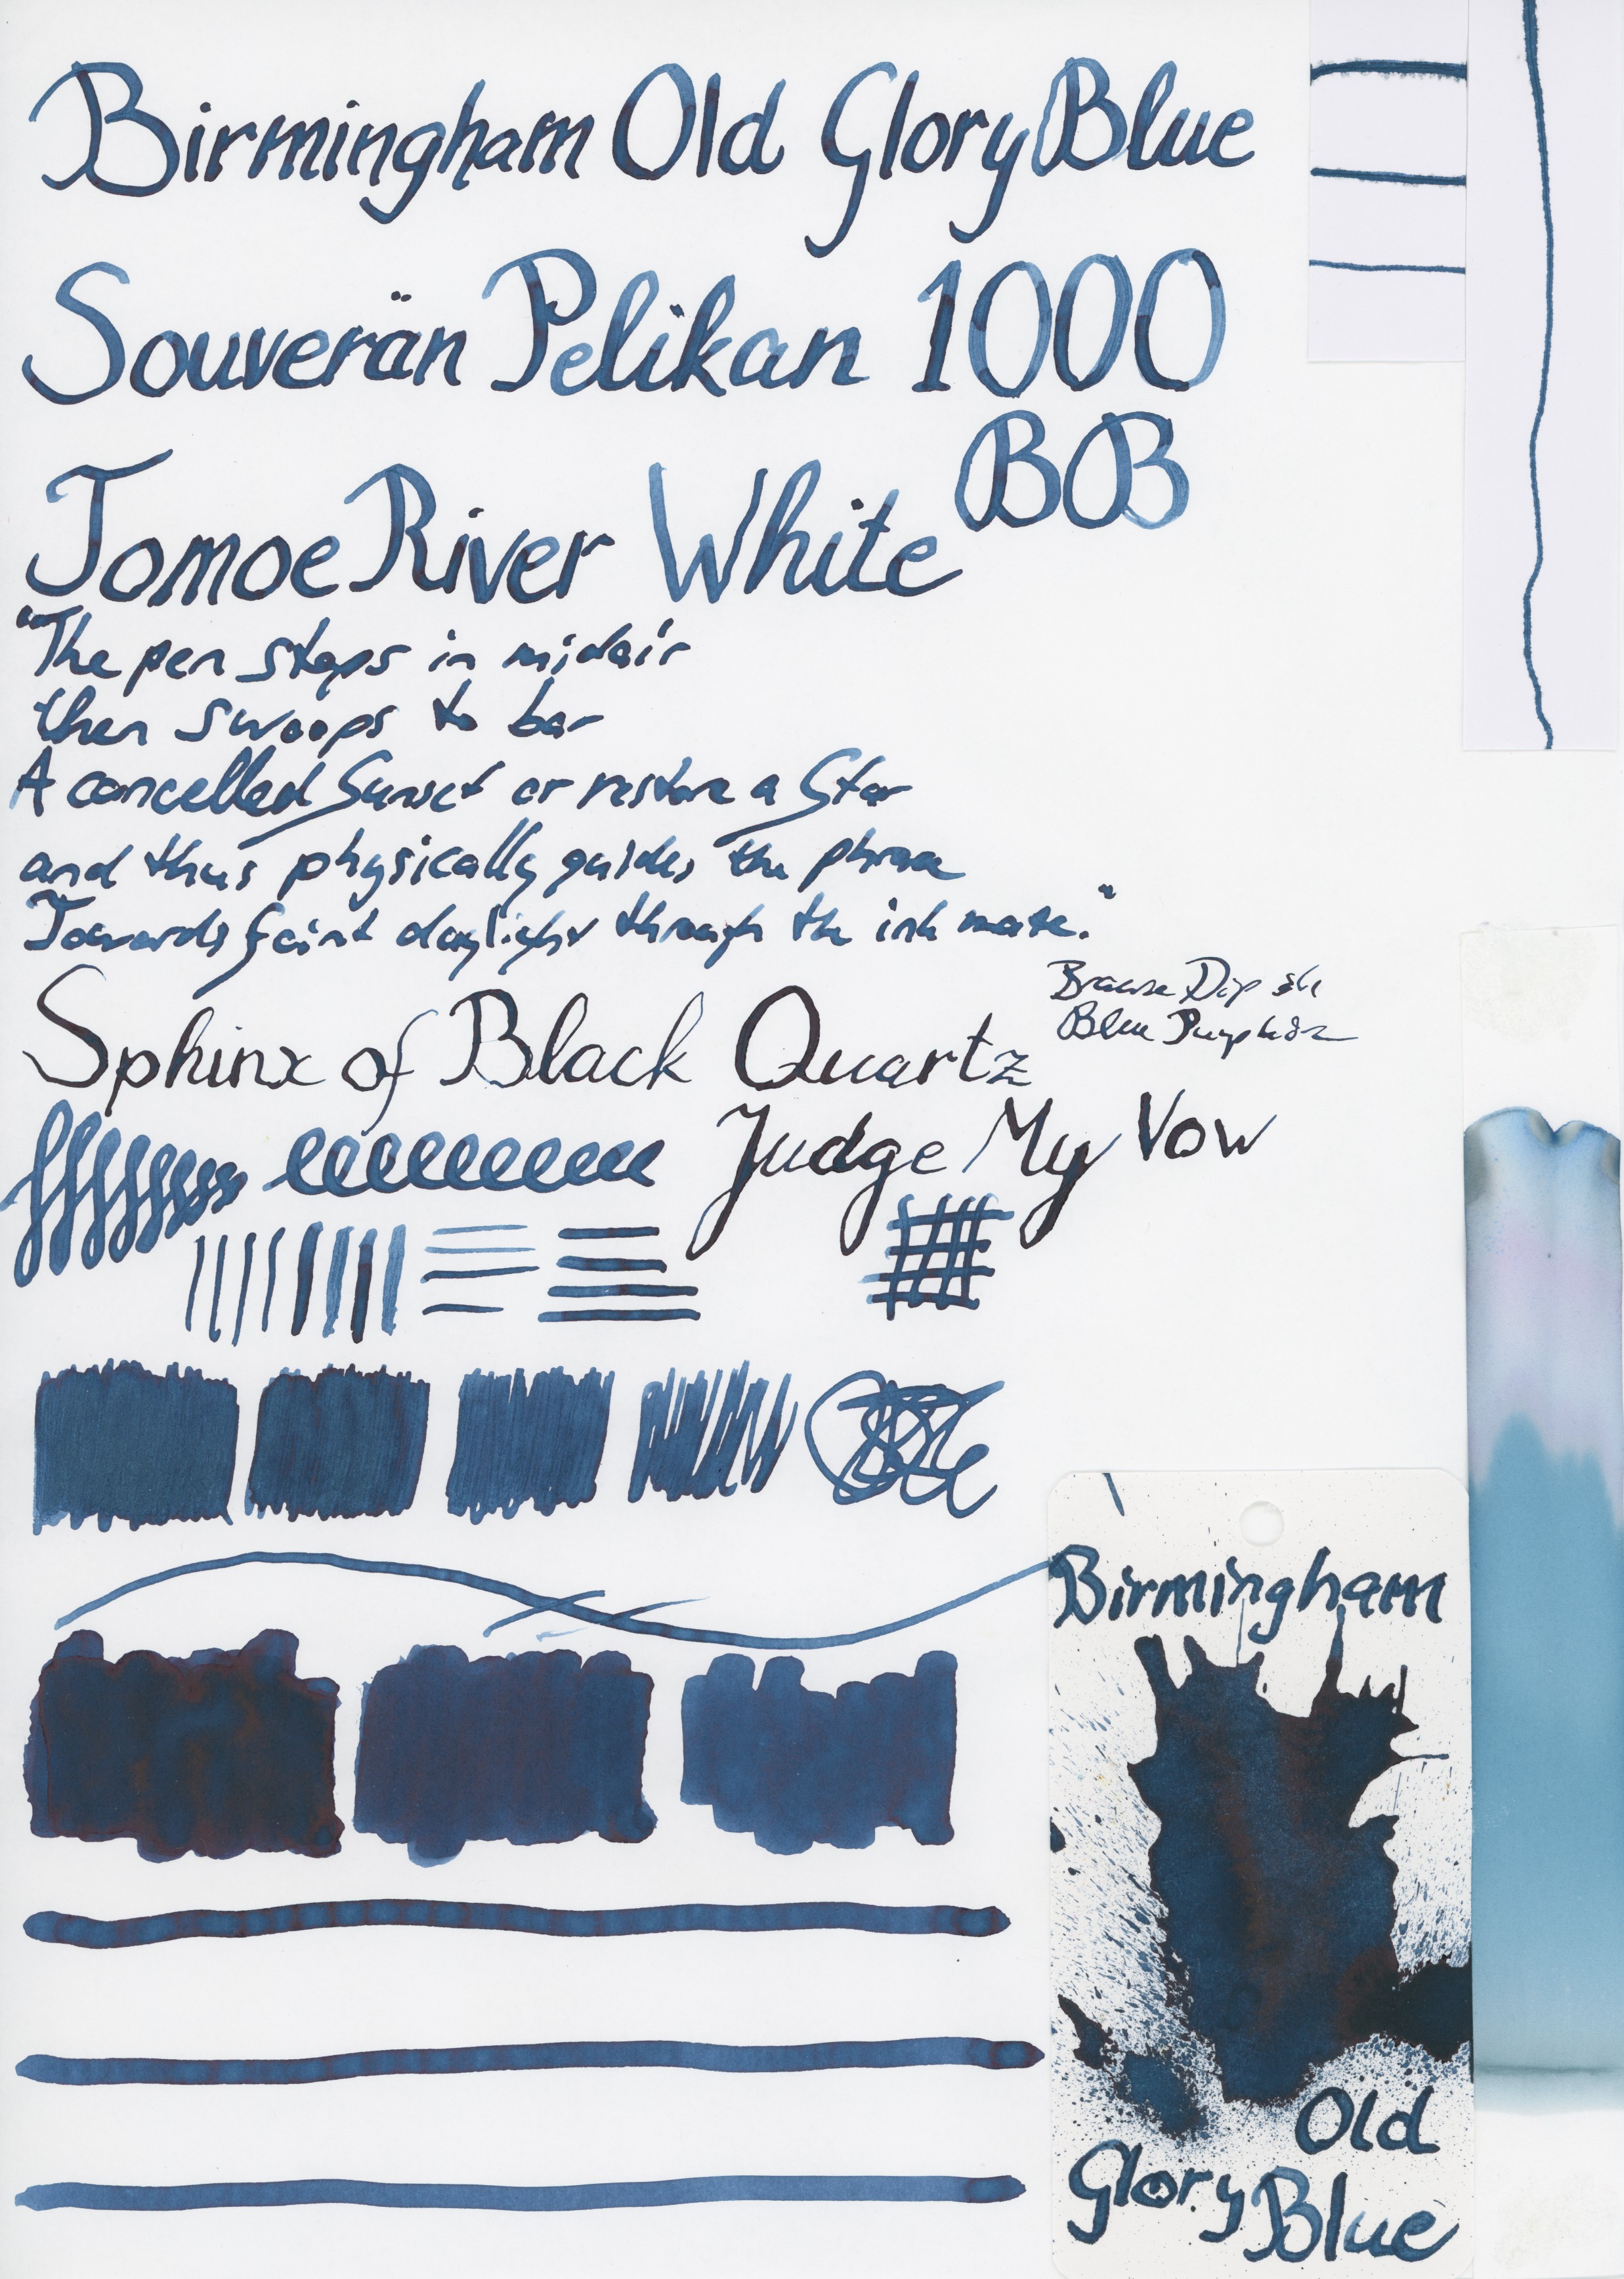 Birmingham Old Glory Blue
Souverän Pelikan 1000
BB
Tomoe River White
"The pen stops in midair
then swoops to bar
A cancelled Sunset or restore a Star
and thus physically guides the phrase
Towards faint daylight through the ink maze."
Brause Dip
Blue
Sphinx of Black Quartz
Judge My Vow
Birmingham
Old
Glory Blue